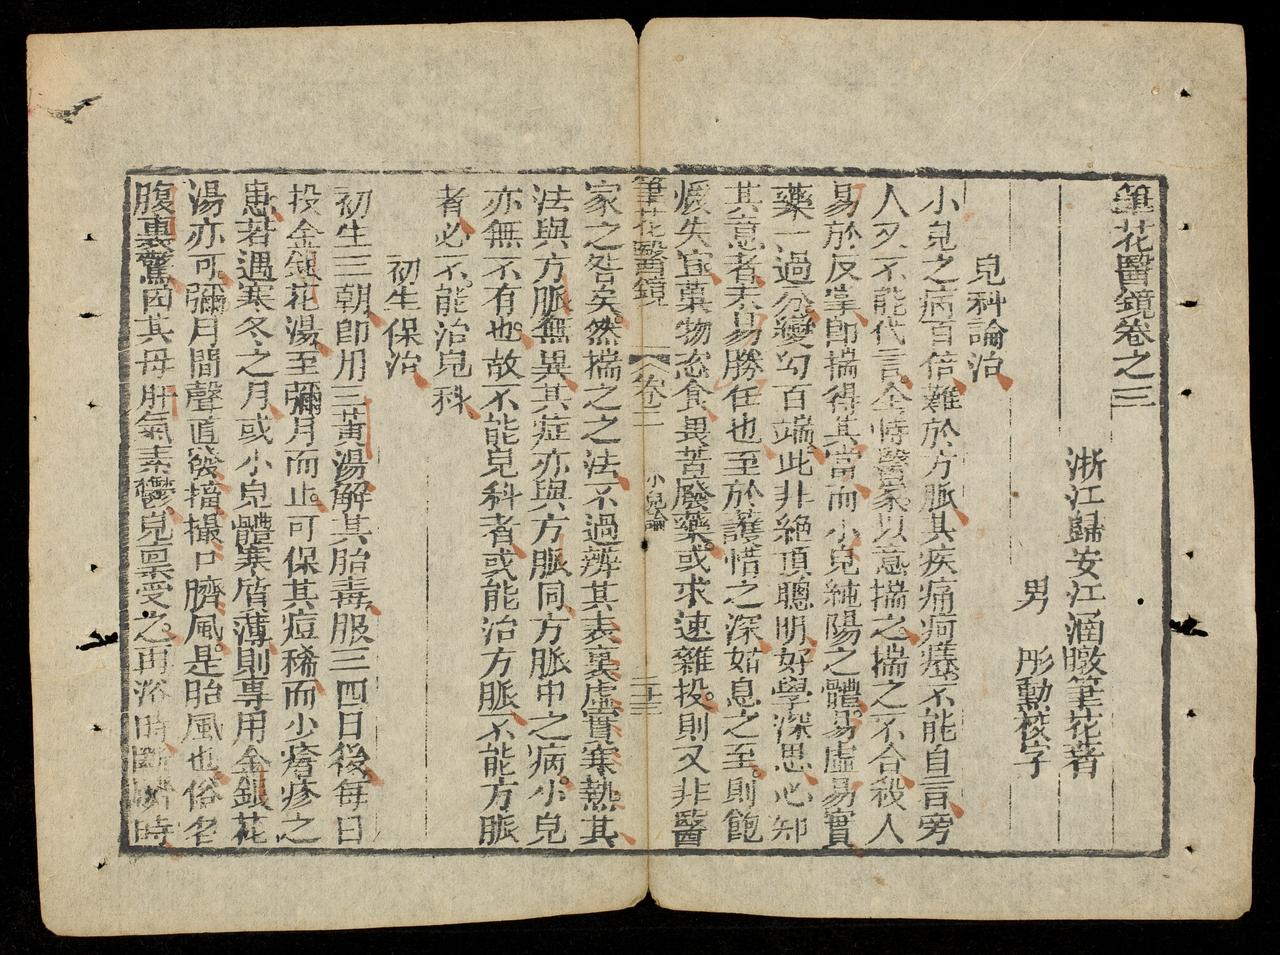 筆花醫鏡卷之三
浙江歸安江涵暾筆花著
男 彤勲校字
兒科論治
小兒之病百倍難於方脈其疾痛疴癢不能自言旁
人又不能代言全恃醫家以意揣之揣之不合殺人
易於反掌即揣得其當而小兒純陽之體易虛易實
藥一過分變幻百端此非絶頂聰明好學深思心知
其意者未易勝任也至於護惜之深姑息之至則飽
煖失宜藁物恣食畏苦廢藥或求速雜投則又非醫
筆花醫鏡 卷三 小兒論 二十三
家之咎矣然揣之之法不過辨其表裏虛實寒熱其
法與方脈無異其症亦與方脈同方脈中之病小兒
亦無不有也故不能兒科者或能治方脈不能方脈
者必不能治兒科
初生保治
初生三朝即用三黃湯解其胎毒服三四日後每日
投金銀花湯至彌月而止可保其痘稀而少瘡疹之
患若遇寒冬之月或小兒體寒質薄則專用金銀花
湯亦可彌月間聲直發搐撮口臍風是胎風也俗名
腹裏驚因其母肝氣素鬱兒稟受之再浴時斷臍時